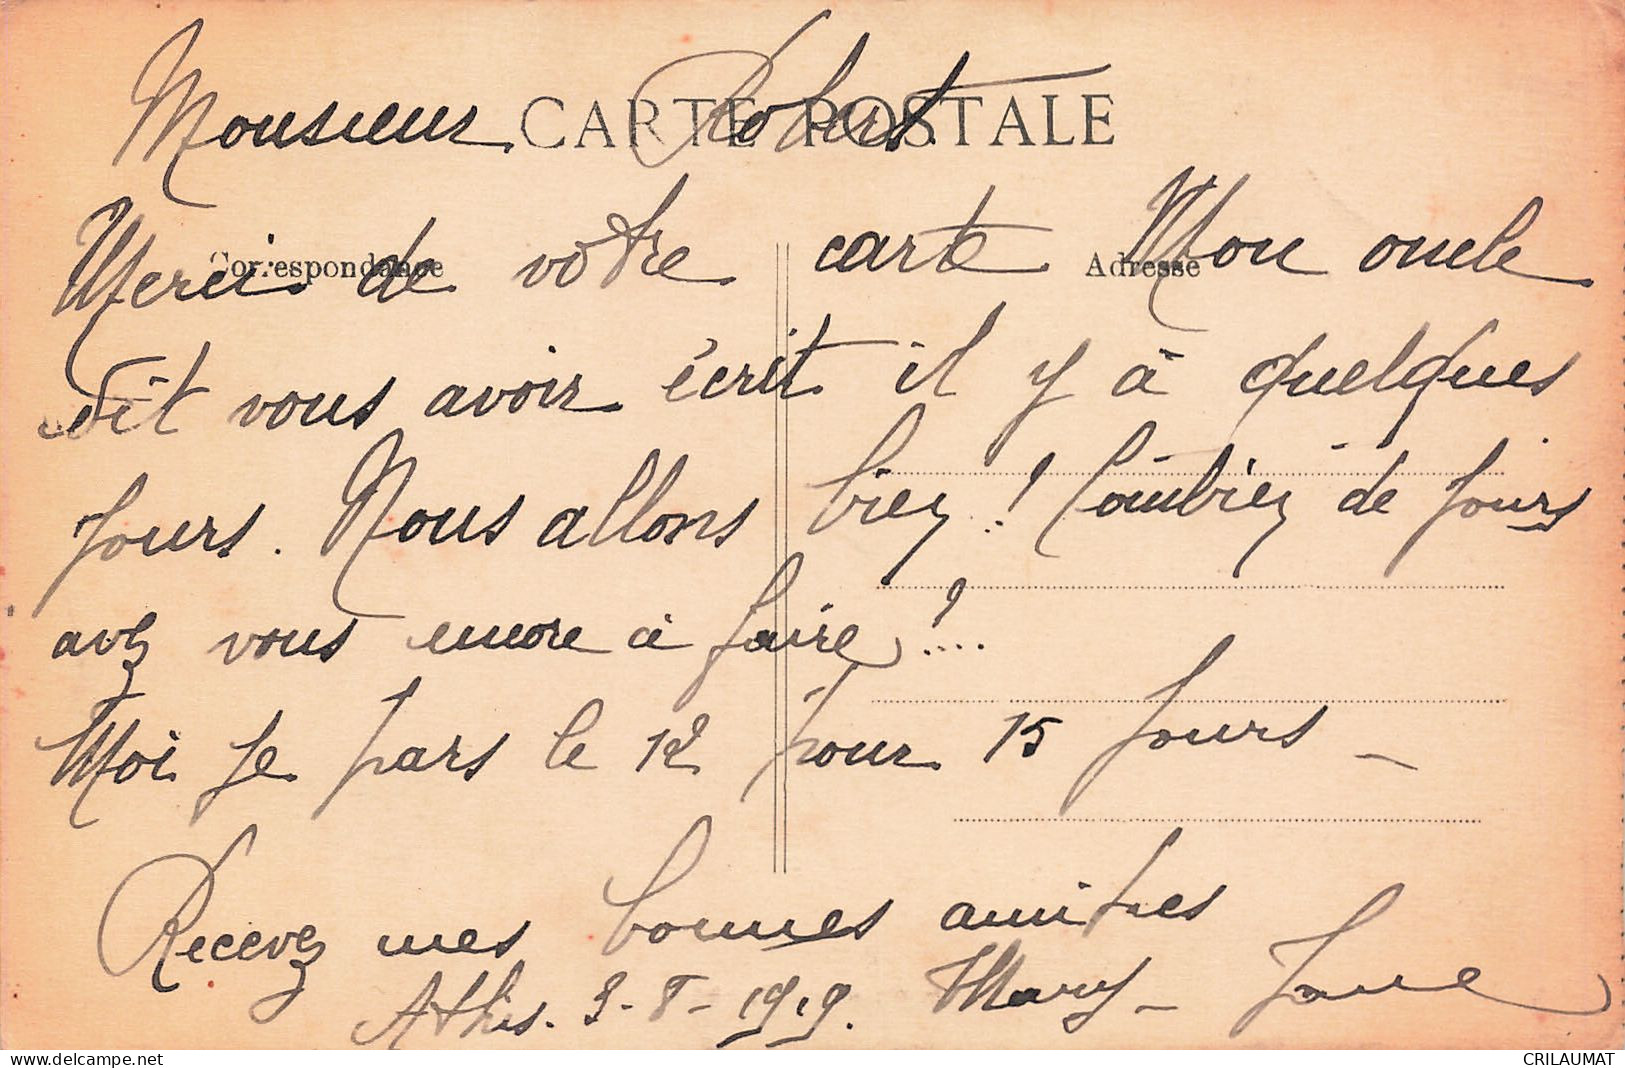 CARTE POSTALE
Monsieur Robert.
Correspondance
Adresse
Merci de votre carte Mon oncle
dit vous avoir écrit il y à quelques
jours. Nous allons bien ! Combien de jours
avez vous encore à faire !...
Moi je pars le 12 pour 15 jours -
Recevez mes bonnes amitiés
Athis. 3-8-1919. Mary-Jane
CRILAUMAT
delcampe.net